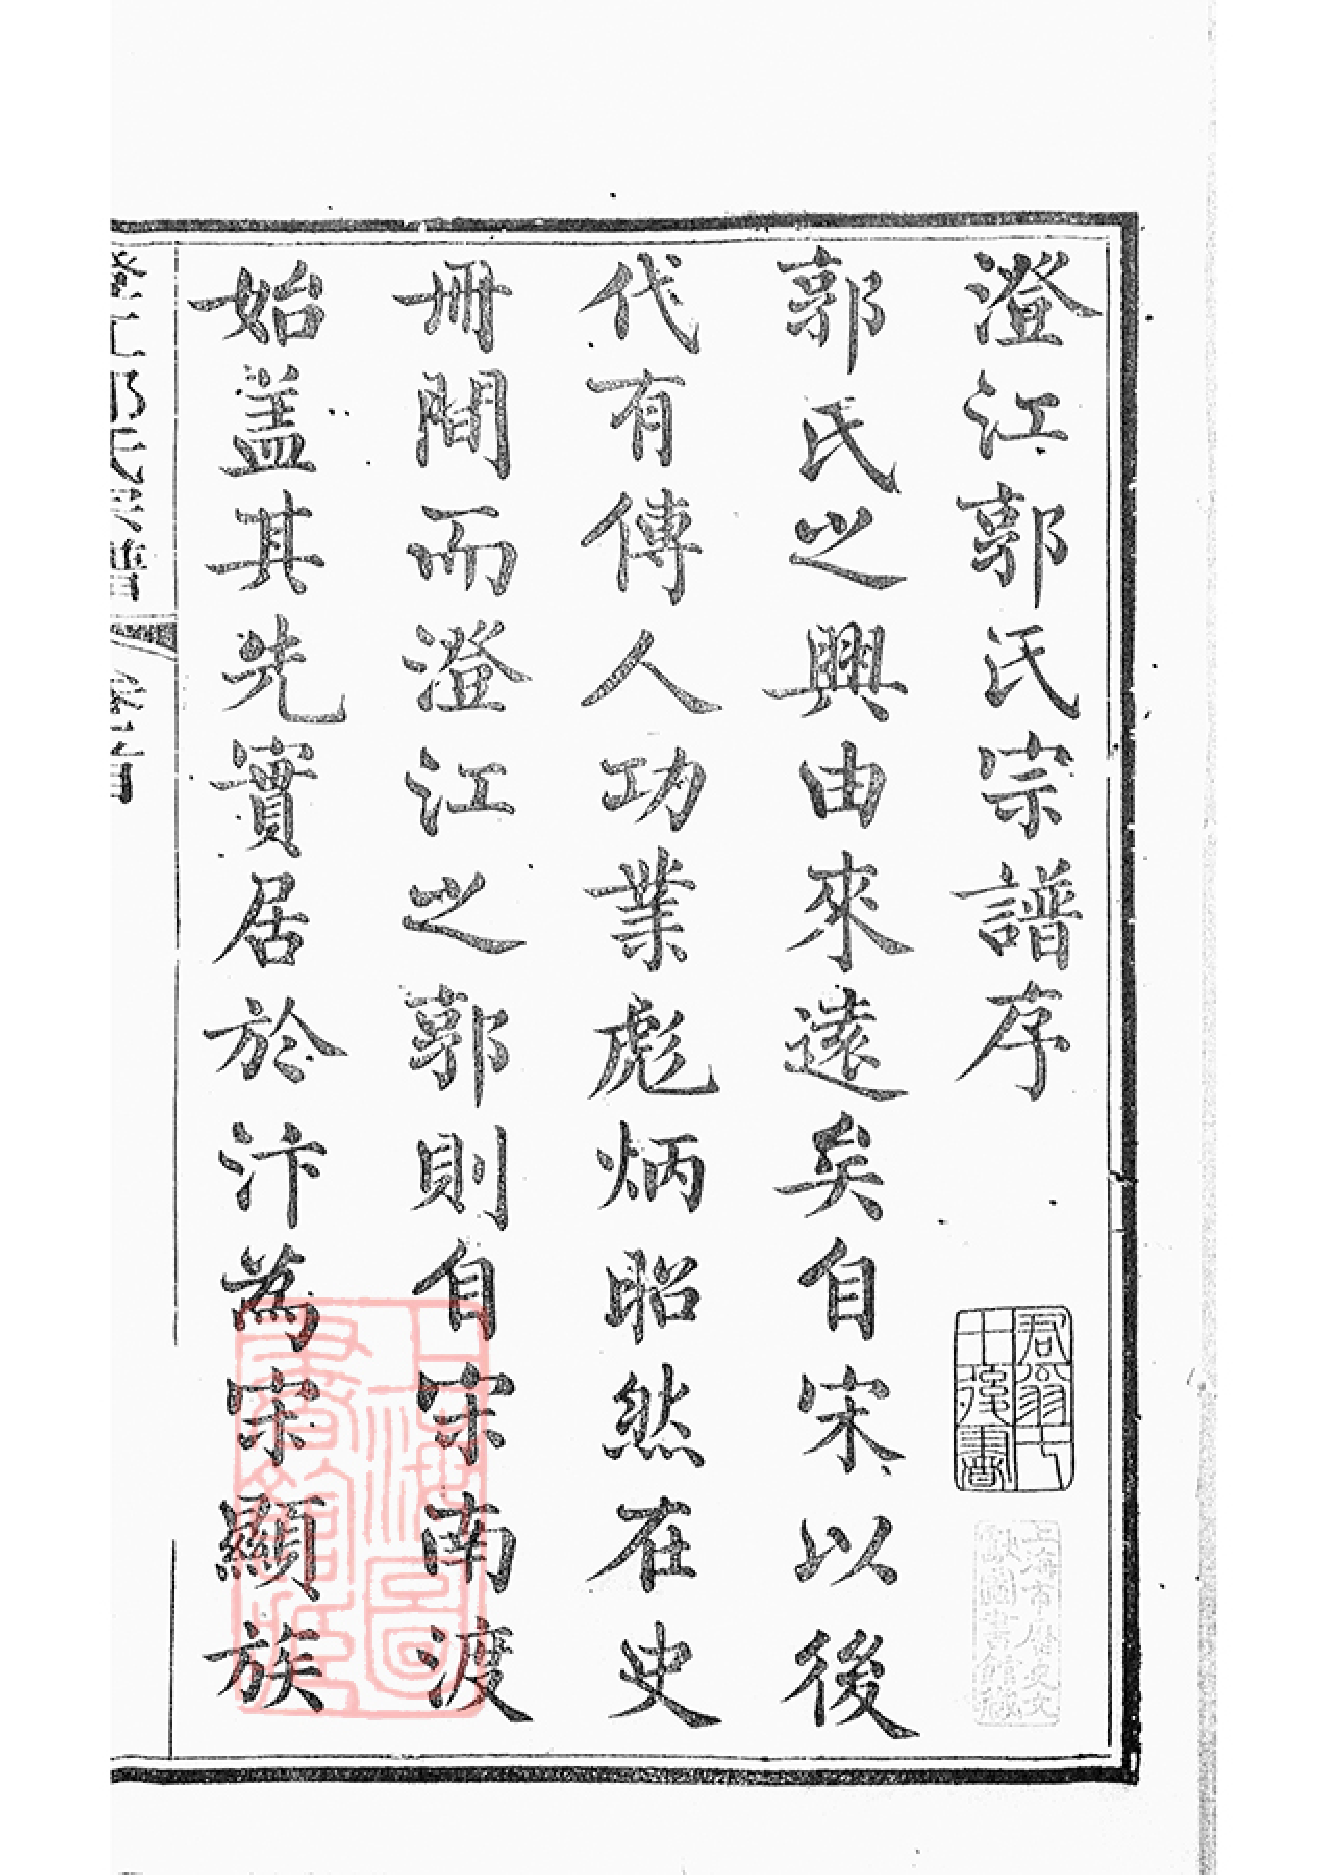 澄江郭氏宗譜序
郭氏之興由來遠矣自宋以後
代有傳人功業彪炳昭然在史
冊間而澄江之郭則自宋南渡
始盖其先實居於汴為宋顯族
上海市歷史文
獻圖書館藏
上海圖
書館藏